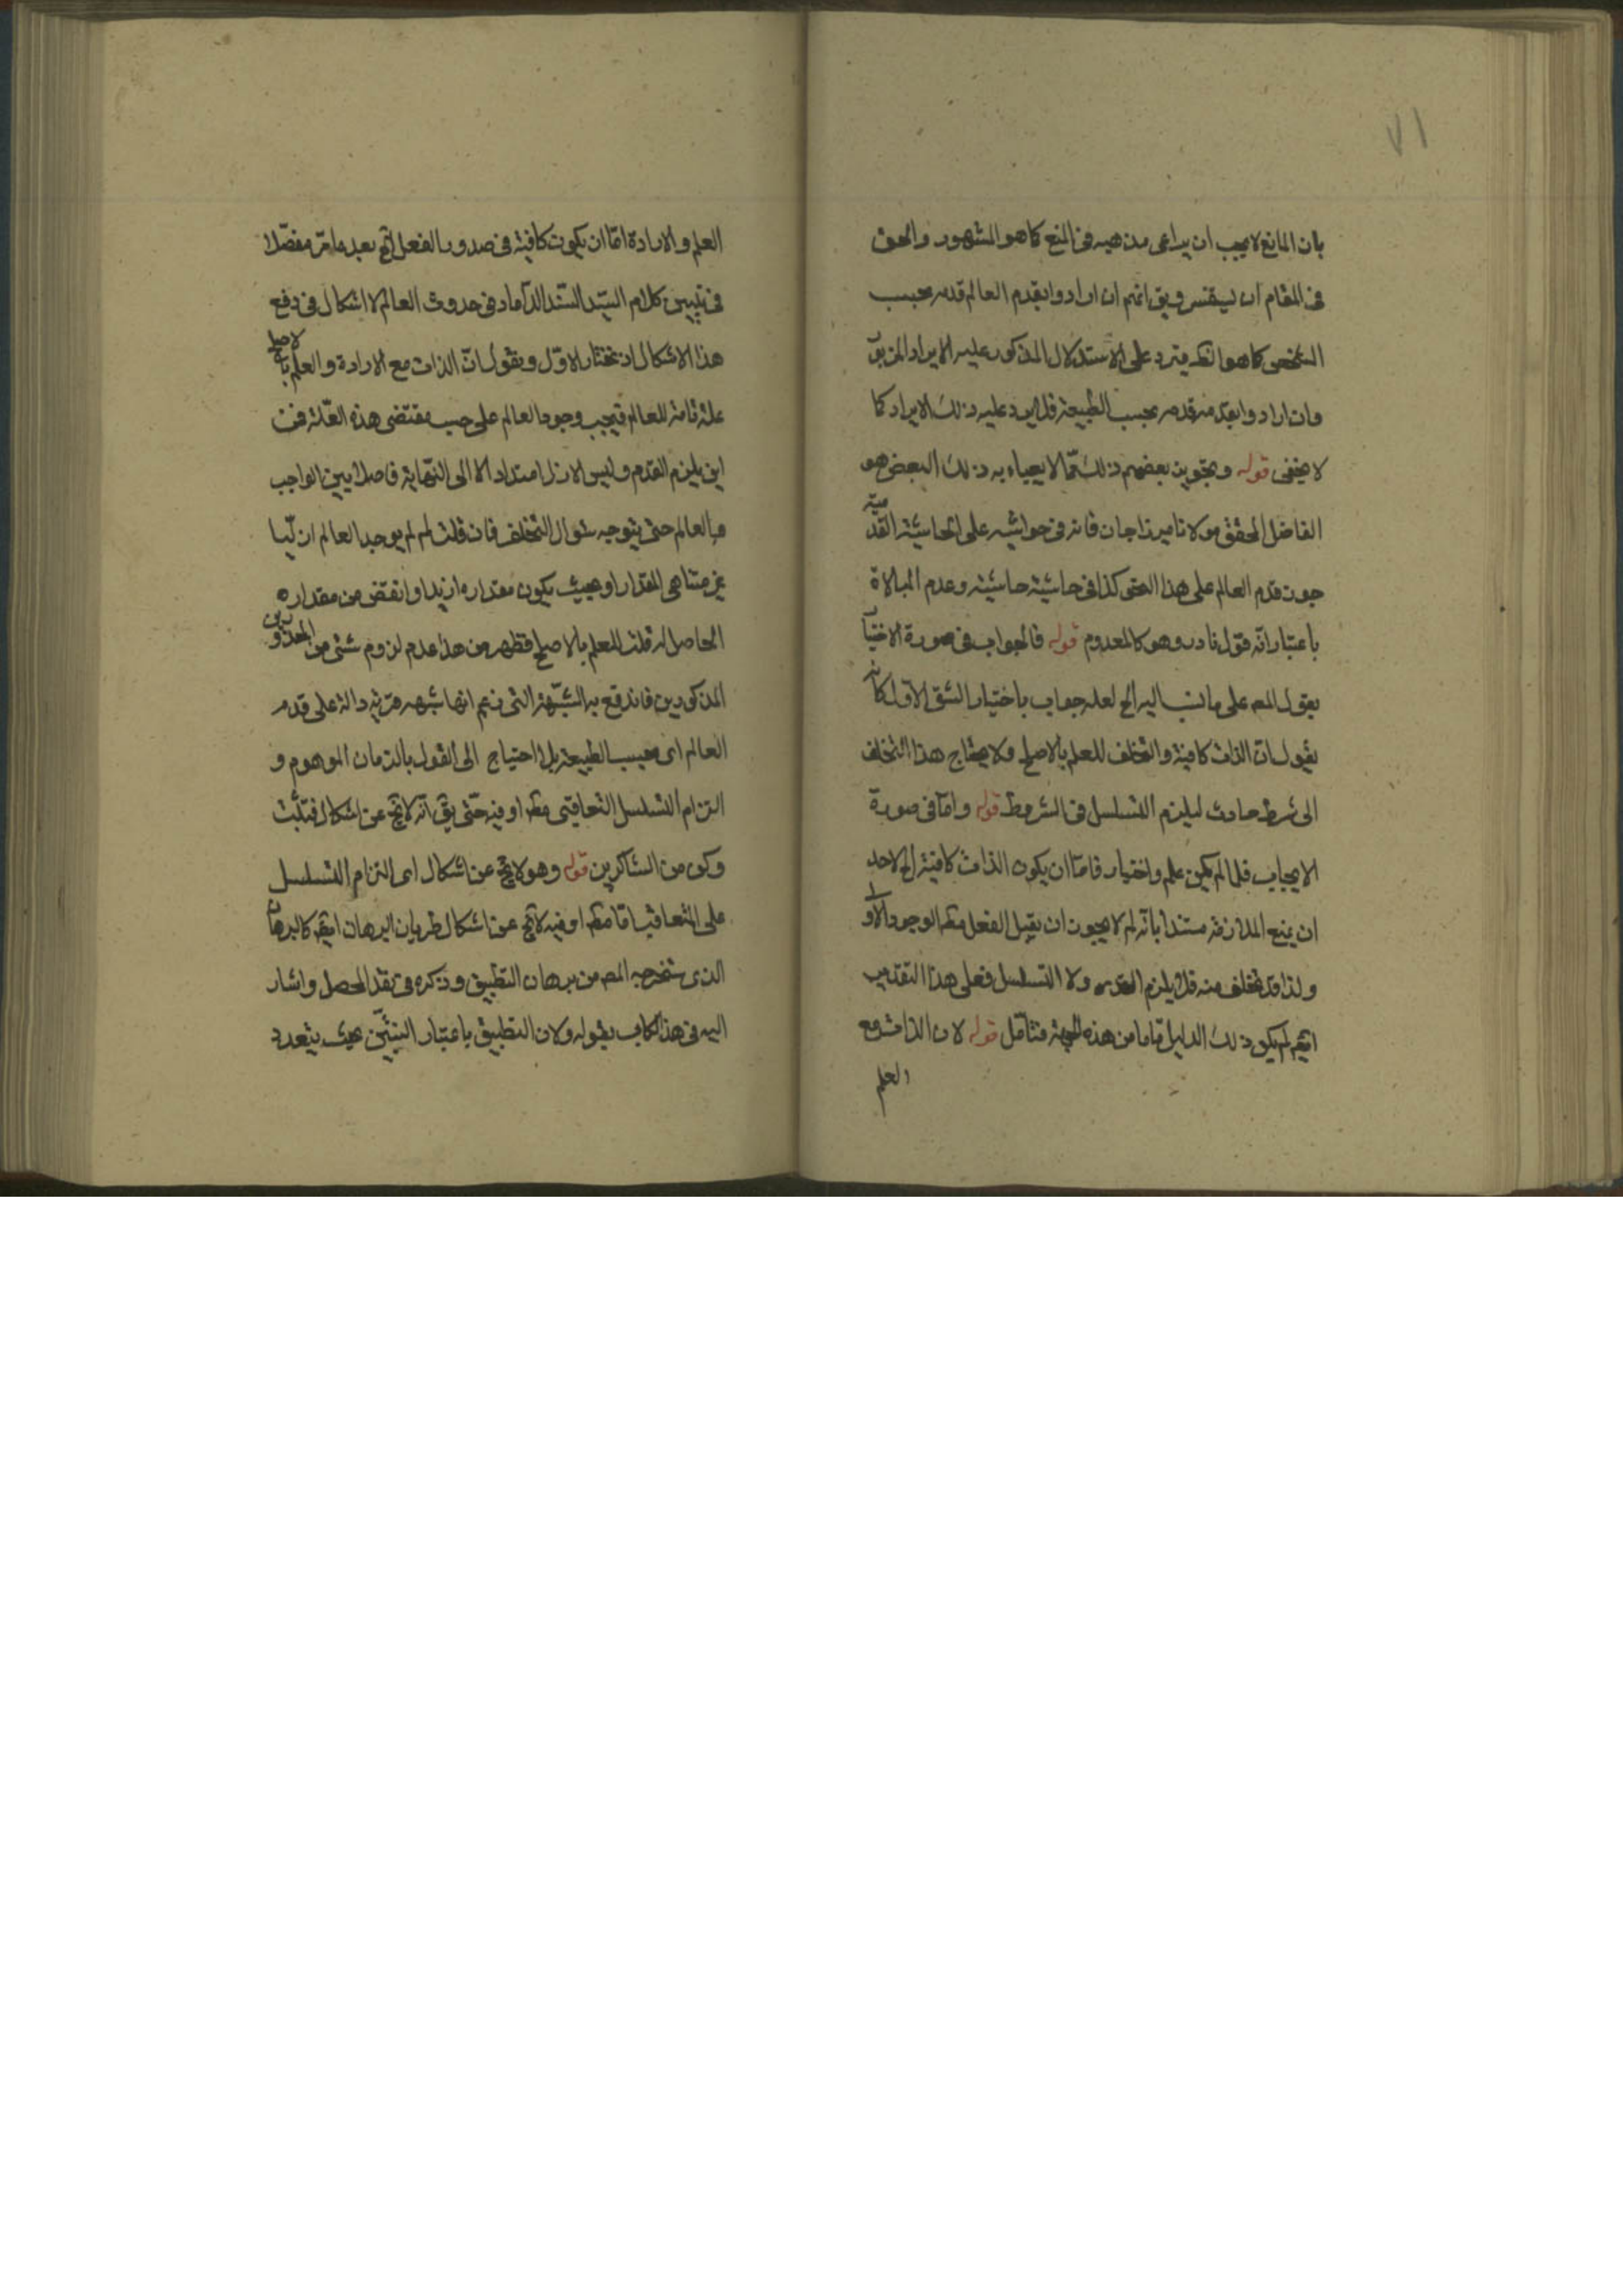 ٧١
بان المانع لا يجب ان يراعى مذهبه فى المنع كما هو المشهور والحق
فى المقام ان يستفسر ويق انهم ان ارادوا بقدم العالم قدمه بحسب
الشخص كما هو الظ فيرد على الاستدلال المذكور عليه الايراد المزبور
وان ارادوا بقدمه قدمه بحسب الطبيعة فلا يرد عليه ذلك الايراد كما
لا يخفى قوله وبتجويز بعضهم ذلك مما لا يعباء به ذلك البعض هو
الفاضل المحقق مولانا ميرزاجان فانه فى حواشيه على الحاشية القديمة
جوز قدم العالم على هذا النحو كذا فى حاشية حاشيته وعدم المبالاة
باعتبار انه قول نادر وهو كالمعدوم قوله فالجواب فى صورة الاختيار
بقول المص على ما نسب اليه الخ لعله جواب باختيار الشق الاول كانه
يقول ان الذات كافية والتخلف للعلم بالاصلح ولا يحتاج هذا التخلف
الى شرط حادث ليلزم التسلسل فى الشروط قوله واما فى صورة
الايجاب فلما لم يكن علم واختيار فاما ان يكون الذات كافية الخ لاحد
ان يمنع الملازمة مستندا بانه لم لا يجوز ان يقبل الفعل مط الوجود الازلى
ولذا قد تخلف منه فلا يلزم القدم ولا التسلسل فعلى هذا التقدير
ايضا لم يكن ذلك الدليل تاما من هذه الجهة فتامل قوله لان الذات مع
العلم
العلم والارادة اما ان يكون كافية فى صدور الفعل الخ بعد ما مر مفصلا
فى تبيين كلام السيد السند الداماد فى حدوث العالم لا اشكال فى دفع
هذا الاشكال اذ نختار الاول ونقول ان الذات مع الارادة والعلم بالاصلح
علة تامة للعالم فيجب وجود العالم على حسب مقتضى هذه العلة فمن
اين يلزم القدم وليس الازل امتدادا لا الى النهاية فاصلا بين الواجب
والعالم حتى يتوجه سئوال التخلف فان قلت لم لم يوجد العالم ازليا
غير متناهى المقدار او بحيث يكون مقداره ازيد او انقص من مقداره
الحاصل له قلت للعلم بالاصلح فظهر من هذا عدم لزوم شئ من المحذورين
المذكورين فاندفع به الشبهة التى زعم انها شبهه قوية دالة على قدم
العالم اى بحسب الطبيعة بلا احتياج الى القول بالزمان الموهوم و
التزام التسلسل التعاقبى مط او فيه حتى يق انه لا يخ عن اشكال فتثبت
وكن من الشاكرين قوله وهو لا يخ عن اشكال اى التزام التسلسل
على التعاقب اما مط او فيه لا يخ عن اشكال لطريان البرهان ايضا كالبرهان
الذى استخرجه المص من برهان التطبيق وذكره فى نقد المحصل واشار
اليه فى هذا الكتاب بقوله ولان التطبيق باعتبار النسبتين بحيث يتعدد